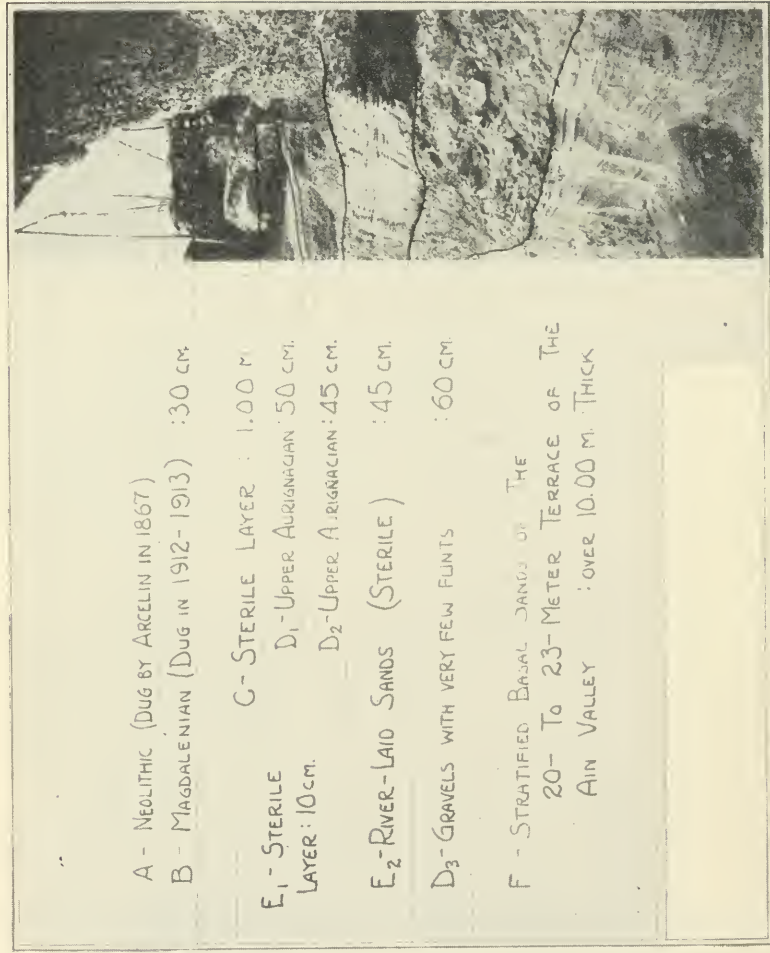 A - NEOLITHIC (DUG BY ARCELIN IN 1867)
B - MAGDALENIAN (DUG IN 1912-1913) :30 CM.
C - STERILE LAYER : 1.00 M
D1 - UPPER AURIGNACIAN : 50 CM.
E1 - STERILE
LAYER : 10 CM.
D2 - UPPER AURIGNACIAN : 45 CM.
E2 - RIVER-LAID SANDS (STERILE) : 45 CM.
D3 - GRAVELS WITH VERY FEW FLINTS : 60 CM.
F - STRATIFIED BASAL SANDS OF THE
20- TO 23- METER TERRACE OF THE
AIN VALLEY : OVER 10.00 M. THICK